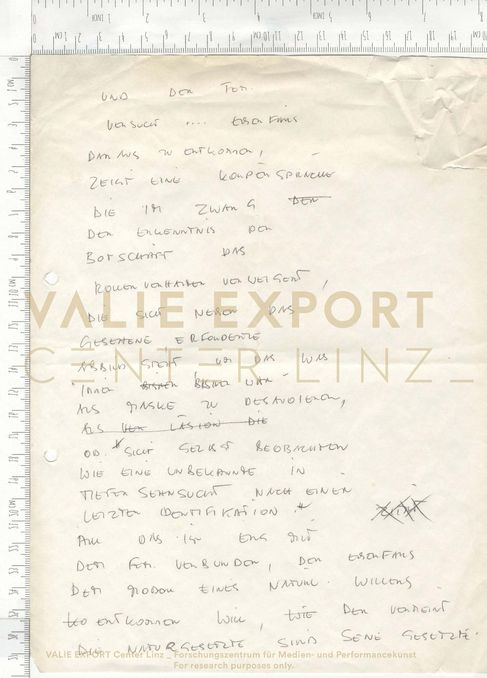 UND DER FEM.
VERSUCHT .... EBENFALLS
DARAUS ZU ENTKOMMEN,
ZEIGT EINE KÖRPERSPRACHE
DIE IM ZWANG DER
DER ERKENNTNIS DER
BOTSCHAFT DAS
ROLLENVERHALTEN VERWEIGERT,
DIE SICH NEBEN DAS
GESEHENE ERFORDERTE
ABBILD STELLT, UM DAS WAS
IMMER BISHER WAR
ALS MASKE ZU DESAVOUIEREN,
ALS DIE
OD. SICH SELBST BEOBACHTEN
WIE EINE UNBEKANNTE IN
TIEFER SEHNSUCHT NACH EINER
LETZTEN IDENTIFIKATION
ALL DAS IST ENG MIT
DEM FEM. VERBUNDEN, DER EBENFALLS
DEM EINES NATURL. WILLENS
ENTKOMMEN WILL, WIE DER VERMEINT
DIE NATURGESETZTE SIND SEINE GESETZTE.
VALIE EXPORT
CENTER LINZ_
VALIE EXPORT Center Linz _ Forschungszentrum für Medien- und Performancekunst
For research purposes only.